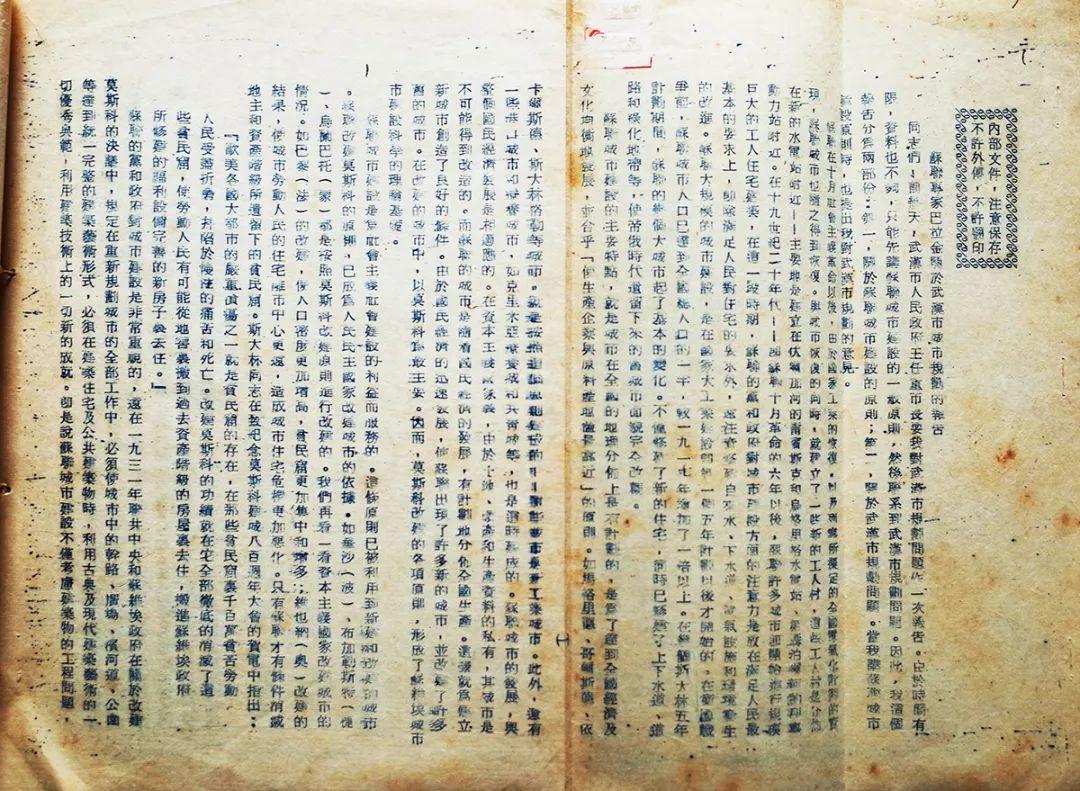 內部文件，注意保存
不許外傳，不許翻印
蘇聯專家巴拉金關於武漢市城市規劃的報告
同志們！前幾天，武漢市人民政府王任重市長要我對武漢市規劃問題作一次報告。由於時間有
限，資料也不夠，只能先講蘇聯城市建設的一般原則，然後聯系到武漢市規劃問題。因此，我這個
報告分爲兩部份：第一，關於蘇聯城市建設的原則；第二，關於武漢市規劃問題。當我講蘇聯城市
建設原則時，也提出我對武漢市規劃的意見。
蘇聯在十月社會主義革命以後，由於國家工業的恢復，以及列寧所擬定的全國電氣化計劃的實
現，蘇聯城市也隨之得到恢復。與城市恢復的同時，就建立了一些新的工人村，這些工人村是分佈
在新的水電站附近——主要地是建立在伏爾加河的
動力站附近。在十九世紀二十年代——即蘇聯十月革命的六年以後，蘇聯許多城市迎開始進行規模
巨大的工人住宅建築，在這一段時期，蘇聯的黨和政府對城市建設方面的注意力是放在滿足人民最
基本的要求上，即除滿足人民對住宅的要求外，還注意修建自來水、下水道、電氣設施和環境衛生
的改進。蘇聯大規模的城市建設，是在國家大工業建設即第一個五年計劃以後才開始的。在愛國戰
爭前，蘇聯城市人口已達到全國總人口的一半，較一九一七年增加了一倍以上。在幾個斯大林五年
計劃期間，蘇聯的幾個大城市起了基本的變化。不僅修建了新的住宅，同時已修建了上下水道、道
路和綠化地帶等，使帝俄時代遺留下來的舊城市面貌完全改觀。
蘇聯城市建設的主要特點，就是城市在全國的地理分佈上是有計劃的，是爲了達到全國經濟及
文化均衡地發展，並合乎「使生產企業與原料產地儘量靠近」的原則。如馬格里哥、哥爾斯德、依
卡爾斯德、斯大林格勒等城市。就是按照這個原則建成的——這些城市是新工業城市。此外，還有
一些港口城市和療養城市，如克里米亞療養城和共青城等，也是這時建成的。蘇聯城市的發展，與
整個國民經濟發展是相適應的。在資本主義國家裏，由於土地、房產和生產資料的私有，其城市是
不可能得到改造的。而蘇聯的城市是隨着國民經濟的發展，有計劃地分佈全國生產。這樣就爲建立
新城市創造了良好的條件。由於國民經濟的迅速發展，使蘇聯出現了許多新的城市，並改建了許多
舊的城市。在改建的城市中，以莫斯科爲最主要。因而，莫斯科改建的各項原則，形成了蘇維埃城市
市建設科學的理論基礎。
蘇聯城市建設是爲社會主義社會建設的利益而服務的。這個原則已被利用到新建和改建的城市
。蘇聯改建莫斯科的原則，已成爲人民民主國家改建城市的依據。如華沙（波）、布加勒斯特（羅
）、烏蘭巴托（蒙）都是按照莫斯科改建原則進行改建的。我們再看一看資本主義國家改建城市的
情况。如巴黎（法）的改建，使人口密度更加增高，貧民窟更加集中和增多；維也納（奧）改建的
結果，使城市勞動人民的住宅離市中心更遠，造成城市住宅危機更加惡化。只有蘇聯才有條件消滅
地主和資產階級所遺留下的貧民窟。斯大林同志在致紀念莫斯科建城八百週年大會的賀電中指出：
『歐美各國大都市的嚴重潰瘍之一就是貧民窟的存在，在那些貧民窟裏千百萬貧苦勞動
人民受盡折磨，并陷於慢性的痛苦和死亡。改建莫斯科的功績就在它全部徹底的消滅了這
些貧民窟，使勞動人民有可能從地窖裏搬到過去資產階級的房屋裏去住，搬進蘇維埃政府
所修建的福利設備完善的新房子裏去住。』
蘇聯的黨和政府對城市建設是非常重視的，還在一九三一年聯共中央和蘇維埃政府在關於改建
莫斯科的決議中，規定在重新規劃城市的全部工作中，必須使城市中的幹路、廣場、濱河道、公園
等達到統一完整的建築藝術形式，必須在建築住宅及公共建築物時，利用古典及現代建築藝術的一
切優秀典範，利用建築技術上的一切新的成就。即是說蘇聯城市建設不僅考慮建築物的工程問題，
一